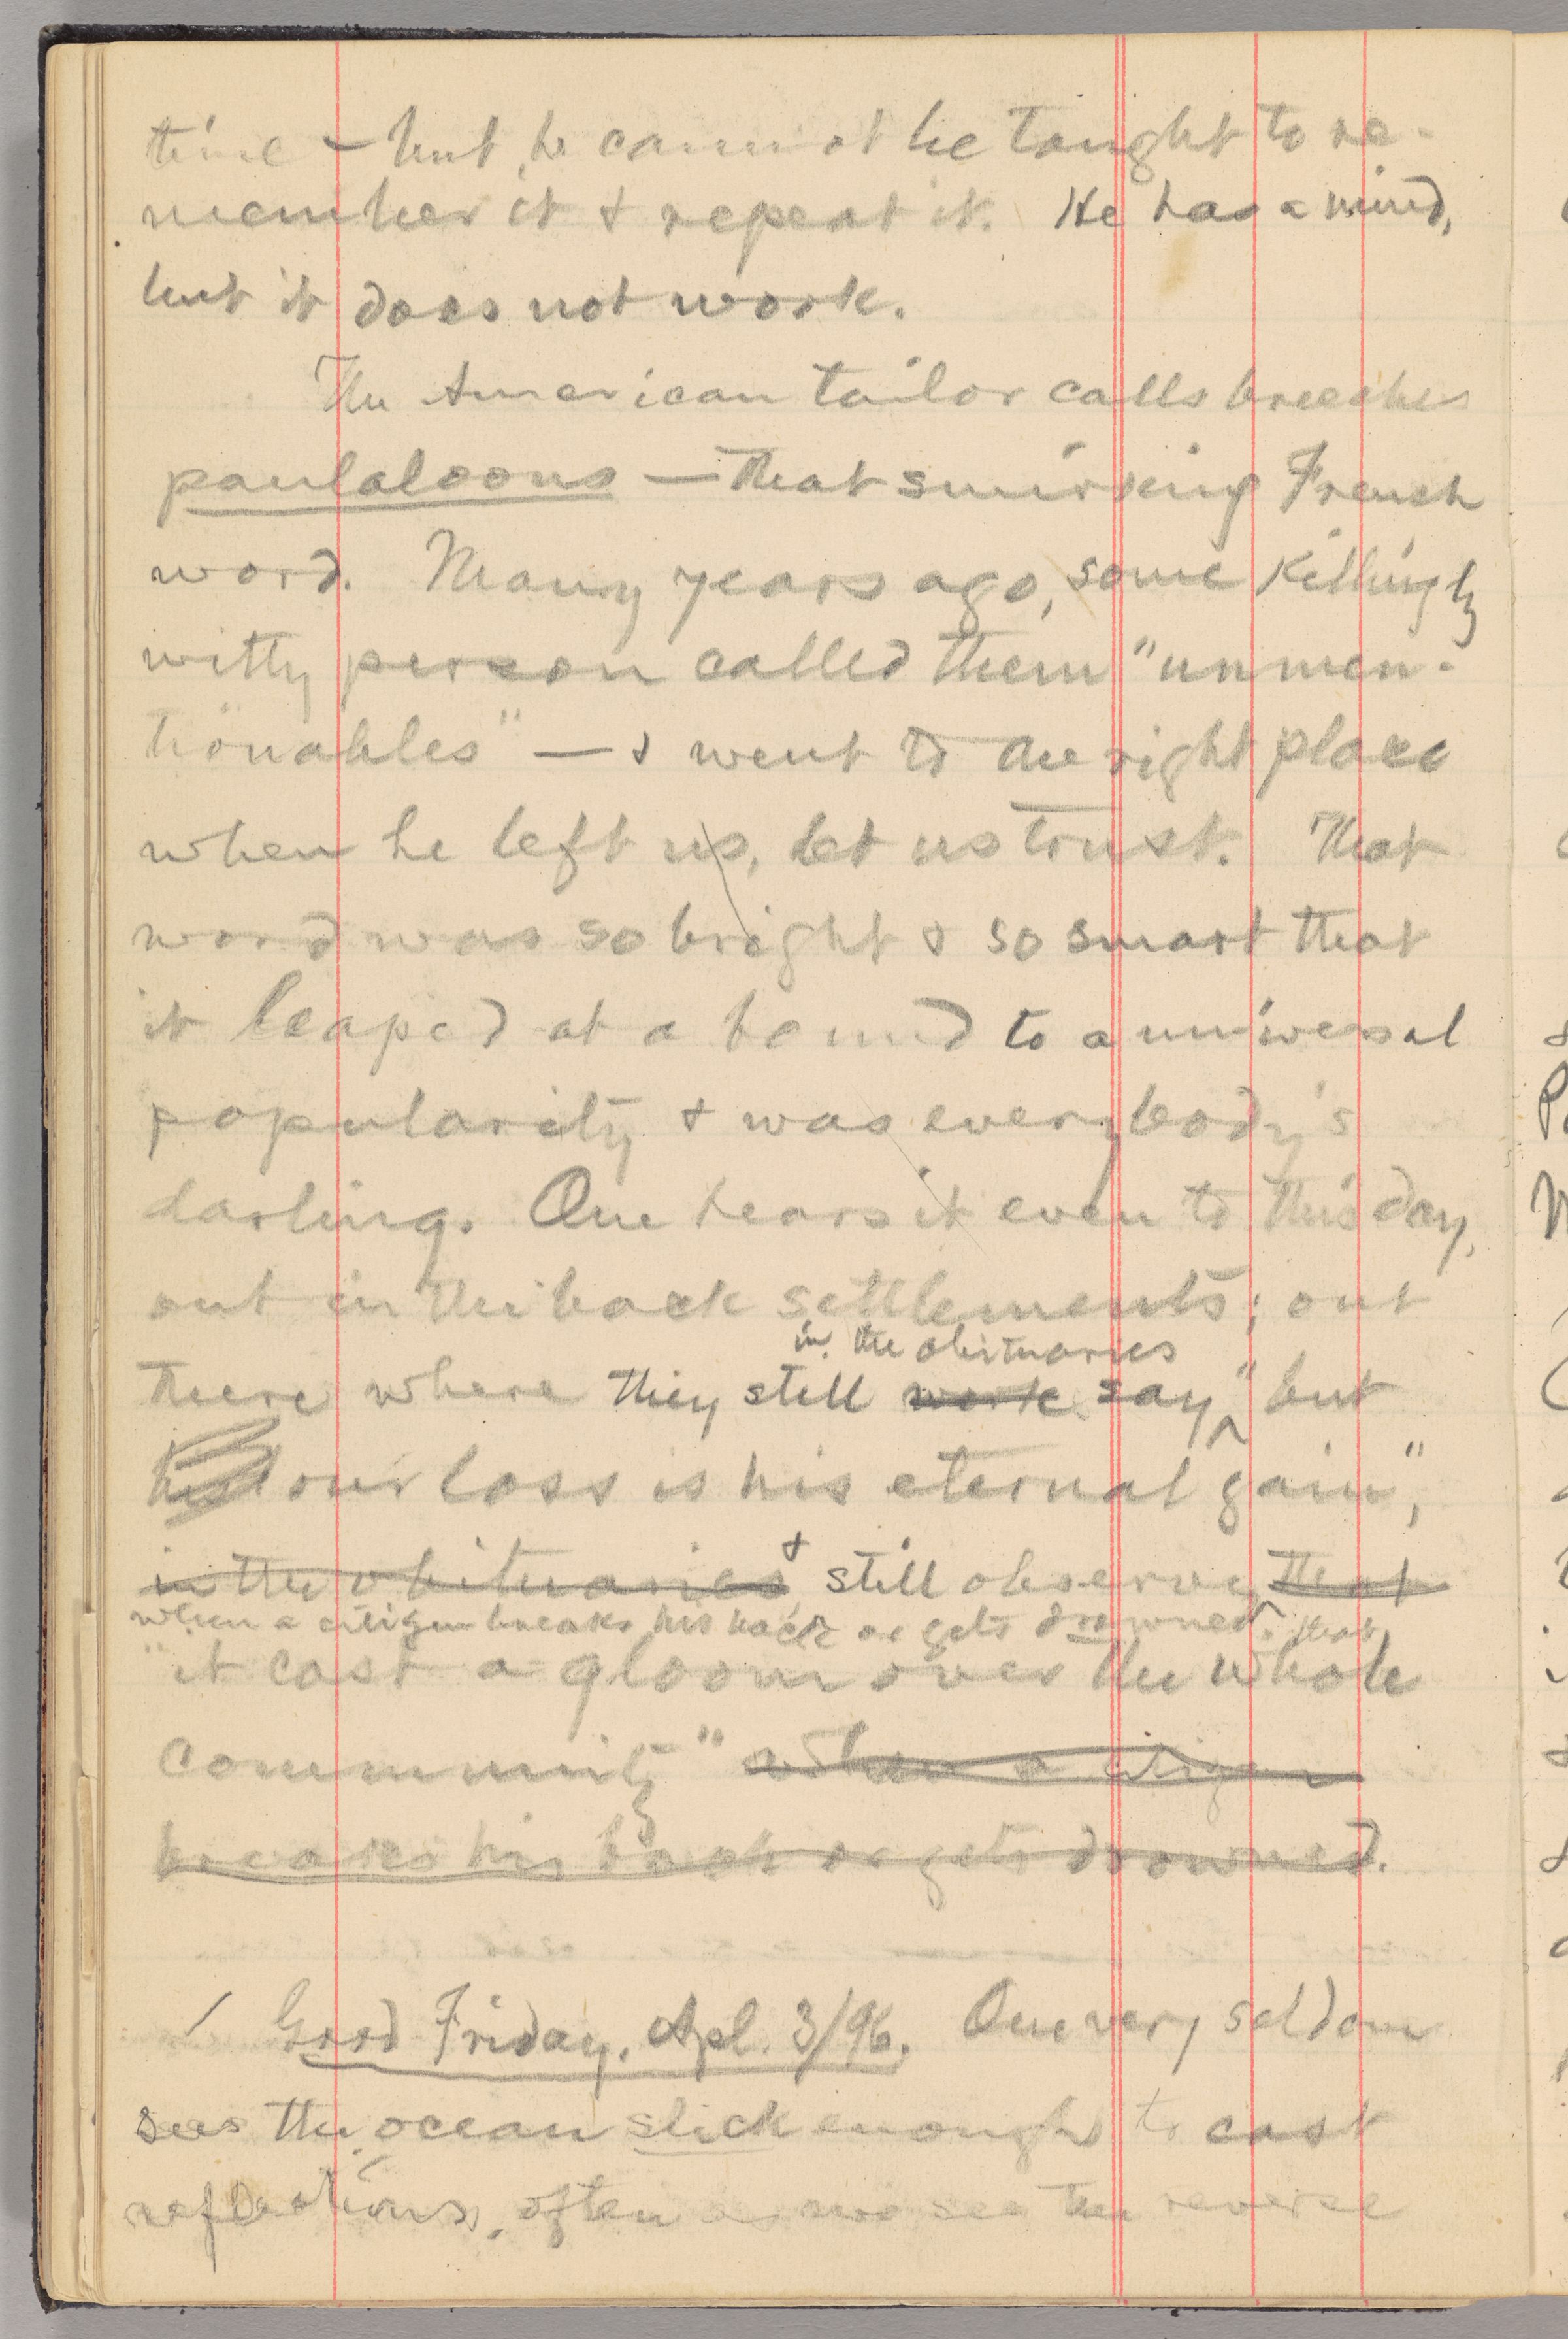 time — but he cannot be taught to re-
member it & repeat it. He has a mind,
but it does not work.
The American tailor calls breeches
pantaloons — that smirking French
word. Many years ago, some killingly
witty person called them "unmen-
tionables" — & went to the right place
when he left us, let us trust. That
word was so bright & so smart that
it leaped at a bound to a universal
popularity & was everybody's
darling. One hears it even to this day,
out in the back settlements; out
in the obituaries
there where they still work say "but
his our loss is his eternal gain",
in the obituaries & still observe that
when a citizen breaks his back or gets drowned that
"it cast a gloom over the whole
community" when a citizen
breaks his back or gets drowned.
✓ Good Friday, Apl. 3/96. One very seldom
sees the ocean slick enough to cast
reflections, often as we see the reverse